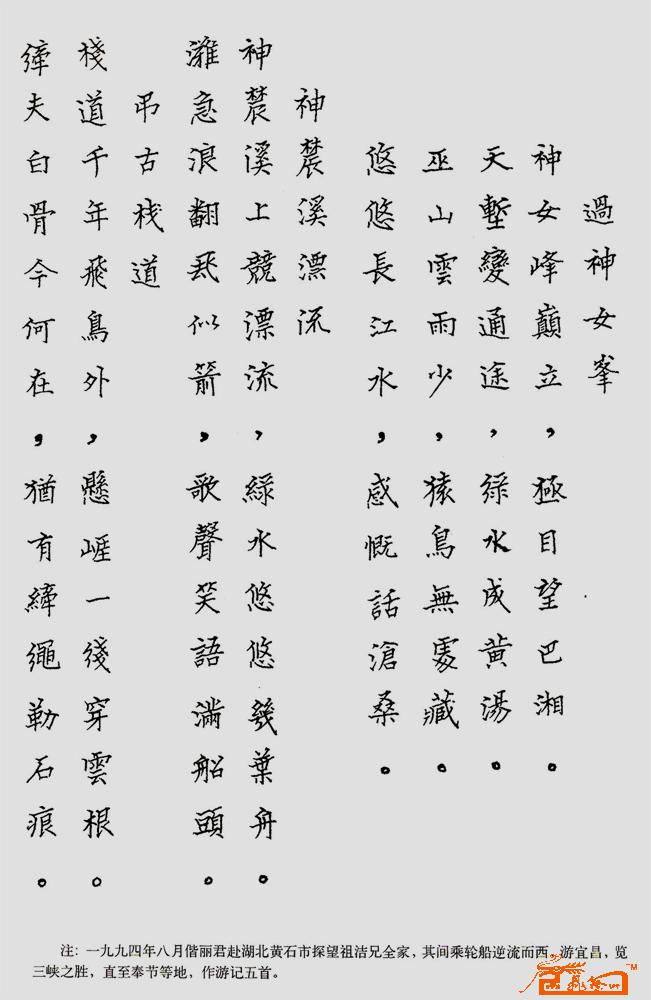 過神女峯
神女峰巔立，極目望巴湘。
天塹變通途，綠水成黄湯。
巫山雲雨少，猿鳥無處藏。
悠悠長江水，感慨話滄桑。
神農溪漂流
神農溪上競漂流，綠水悠悠幾葉舟。
灘急浪翻飛似箭，歌聲笑語滿船頭。
弔古棧道
棧道千年飛鳥外，懸崕一綫穿雲根。
縴夫白骨今何在，猶有縴繩勒石痕。
注：一九九四年八月偕丽君赴湖北黄石市探望祖洁兄全家，其间乘轮船逆流而西，游宜昌，览
三峡之胜，直至奉节等地，作游记五首。